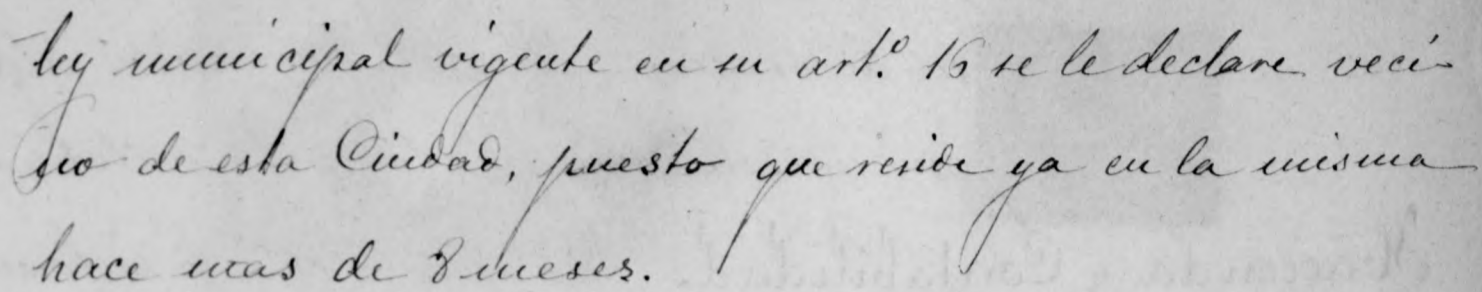 ley municipal vigente en su art.º 16 se le declare veci-
no de esta Ciudad, puesto que reside ya en la misma
hace mas de 8 meses.